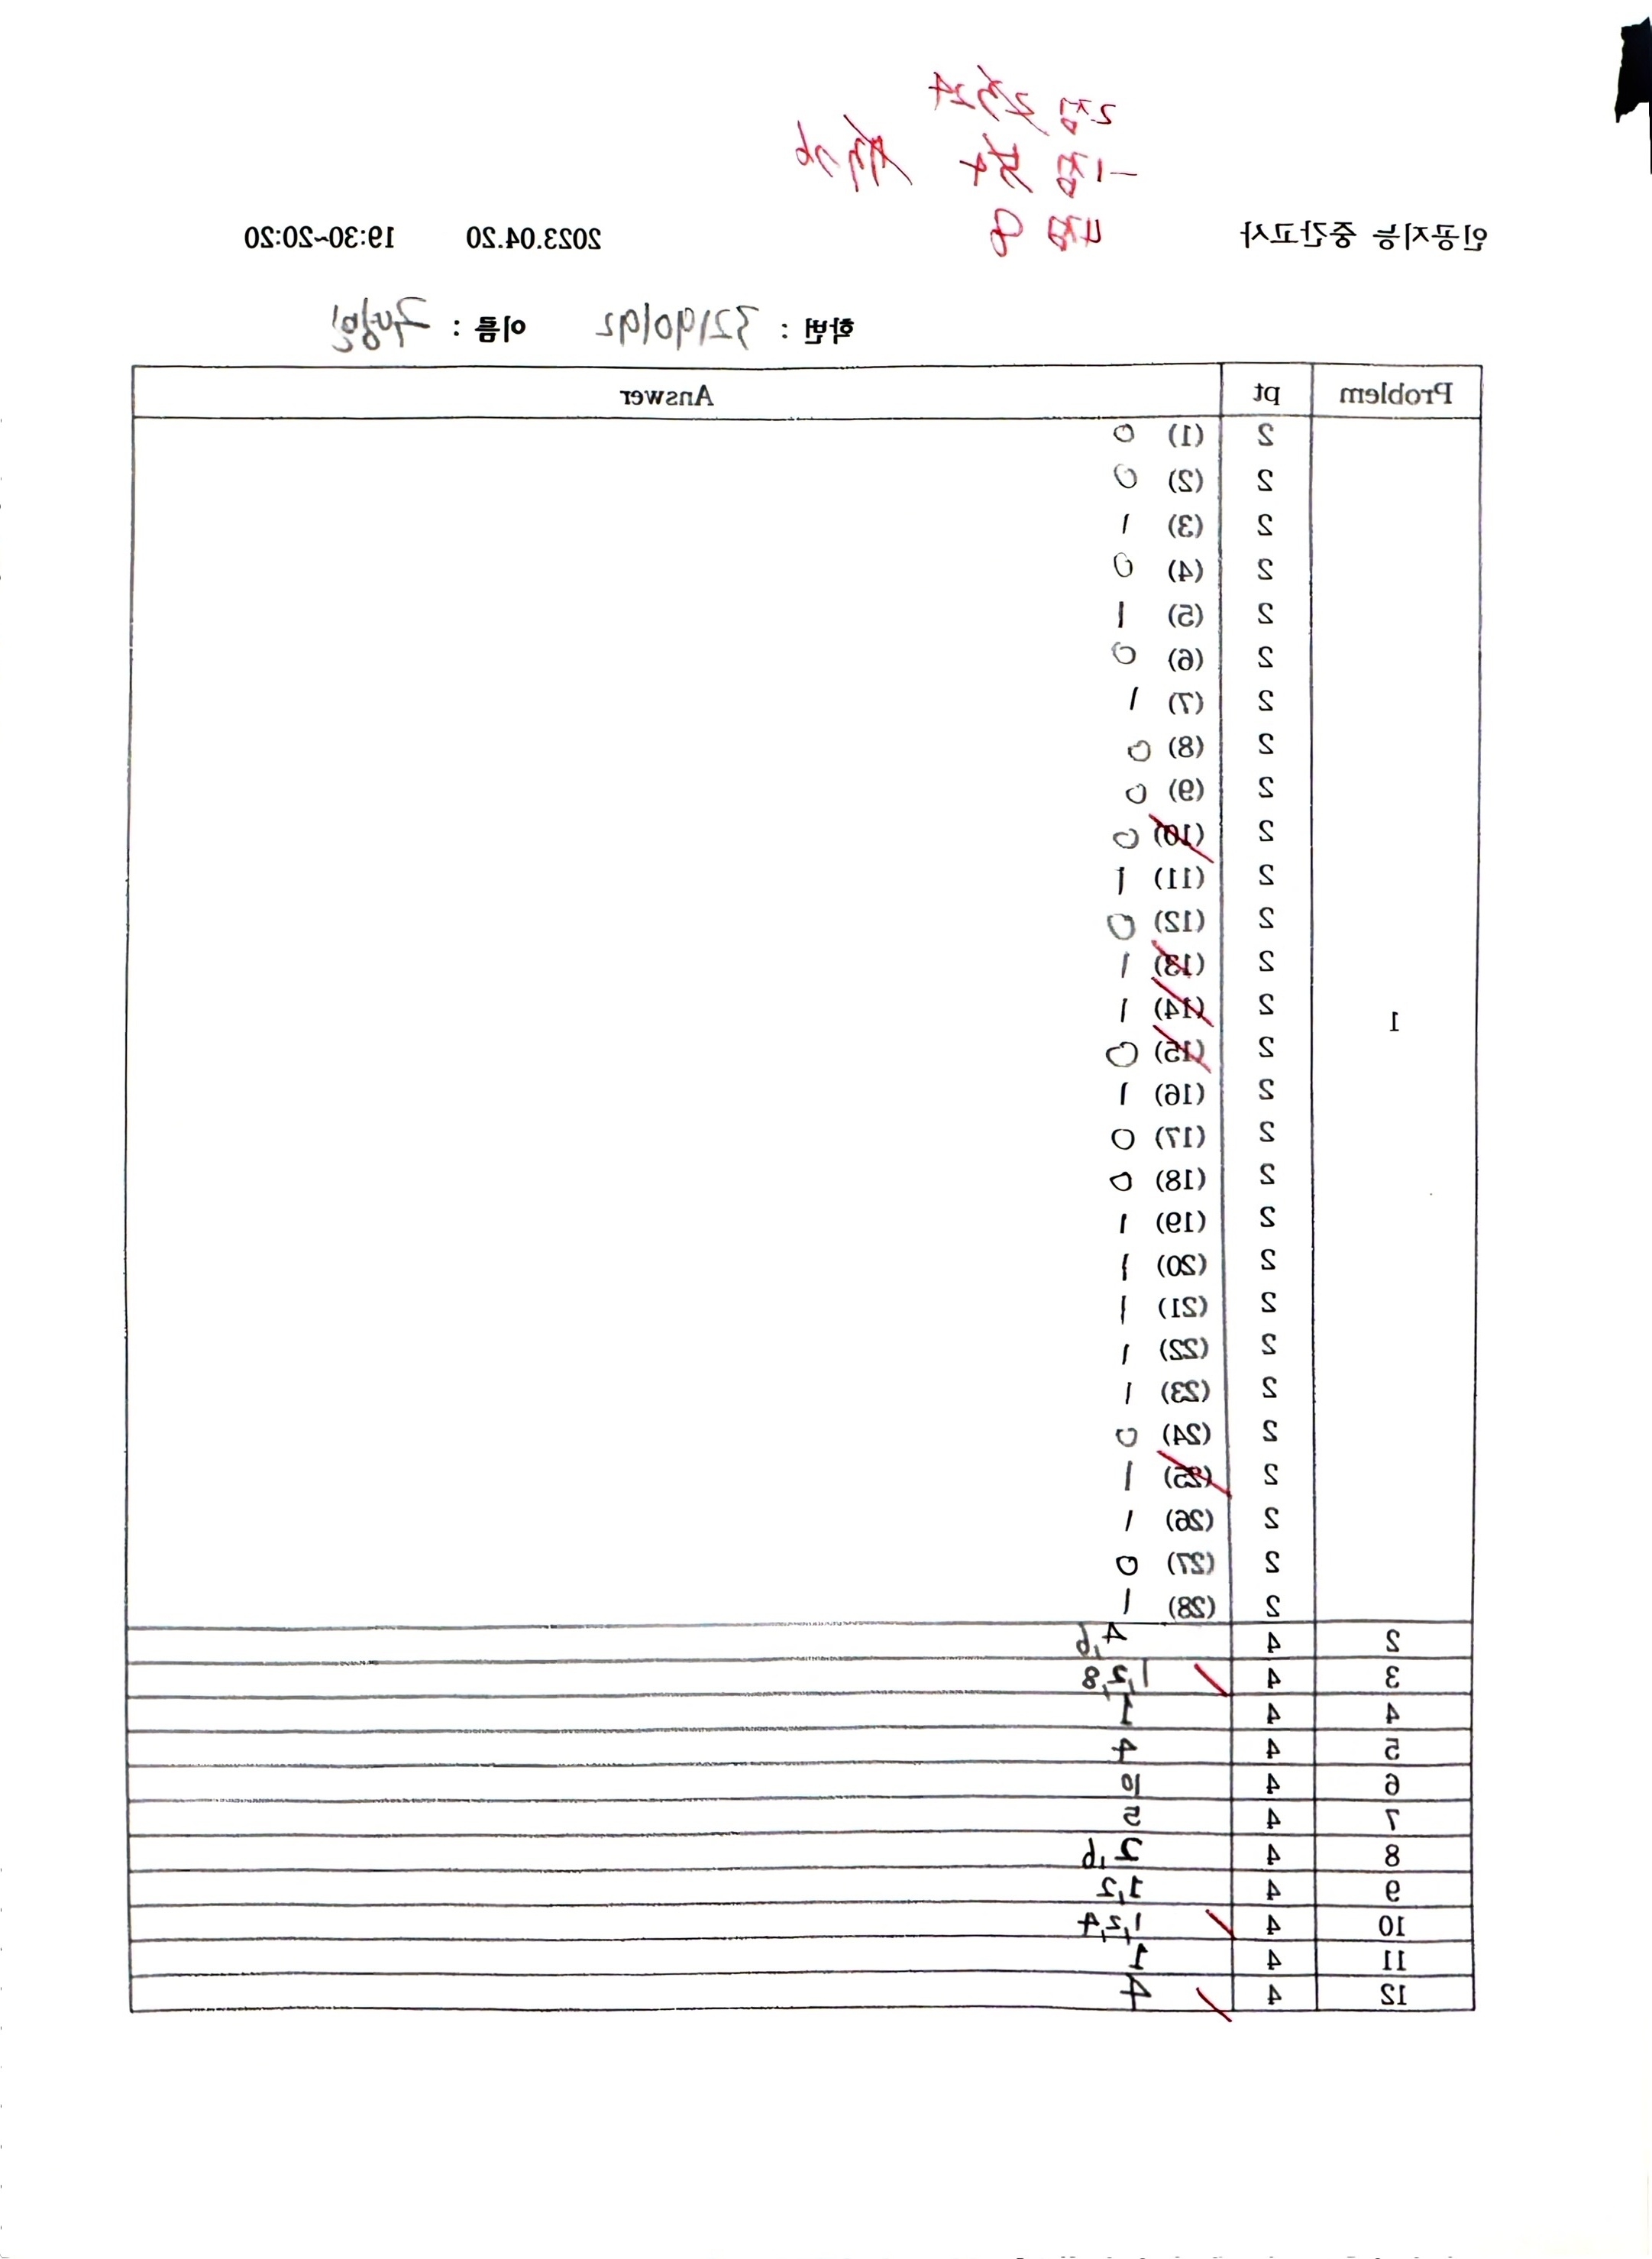 2점 24
-1점 4 76
4점 8
인공지능 중간고사 2023.04.20 19:30~20:20
학번 : 32190192 이름 :
Problem pt Answer
1
2 (1) 0
2 (2) 0
2 (3) 1
2 (4) 0
2 (5) 1
2 (6) 0
2 (7) 1
2 (8) 0
2 (9) 0
2 (10) 0
2 (11) 1
2 (12) 0
2 (13) 1
2 (14) 1
2 (15) 0
2 (16) 1
2 (17) 0
2 (18) 0
2 (19) 1
2 (20) 1
2 (21) 1
2 (22) 1
2 (23) 1
2 (24) 0
2 (25) 1
2 (26) 1
2 (27) 0
2 (28) 1
2 4 4,6
3 4 1,2,8
4 4 1
5 4 4
6 4 10
7 4 5
8 4 2,6
9 4 1,2
10 4 1,2,4
11 4 1
12 4 4